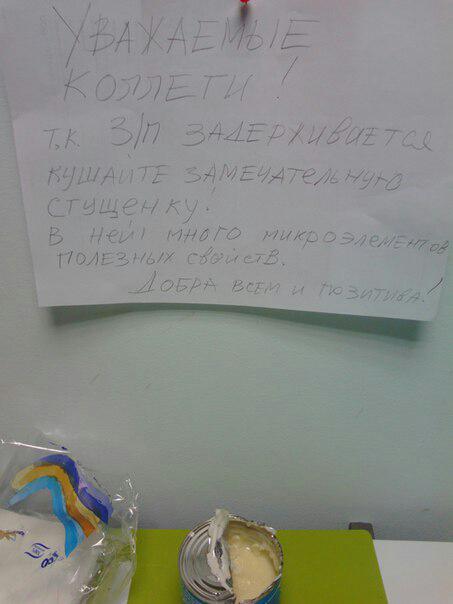 Уважаемые
коллеги!
т.к з/п задерживается
кушайте замечательную
сгущенку!
в ней много микроэлементов
полезных свойств.
Добра всем и позитива!